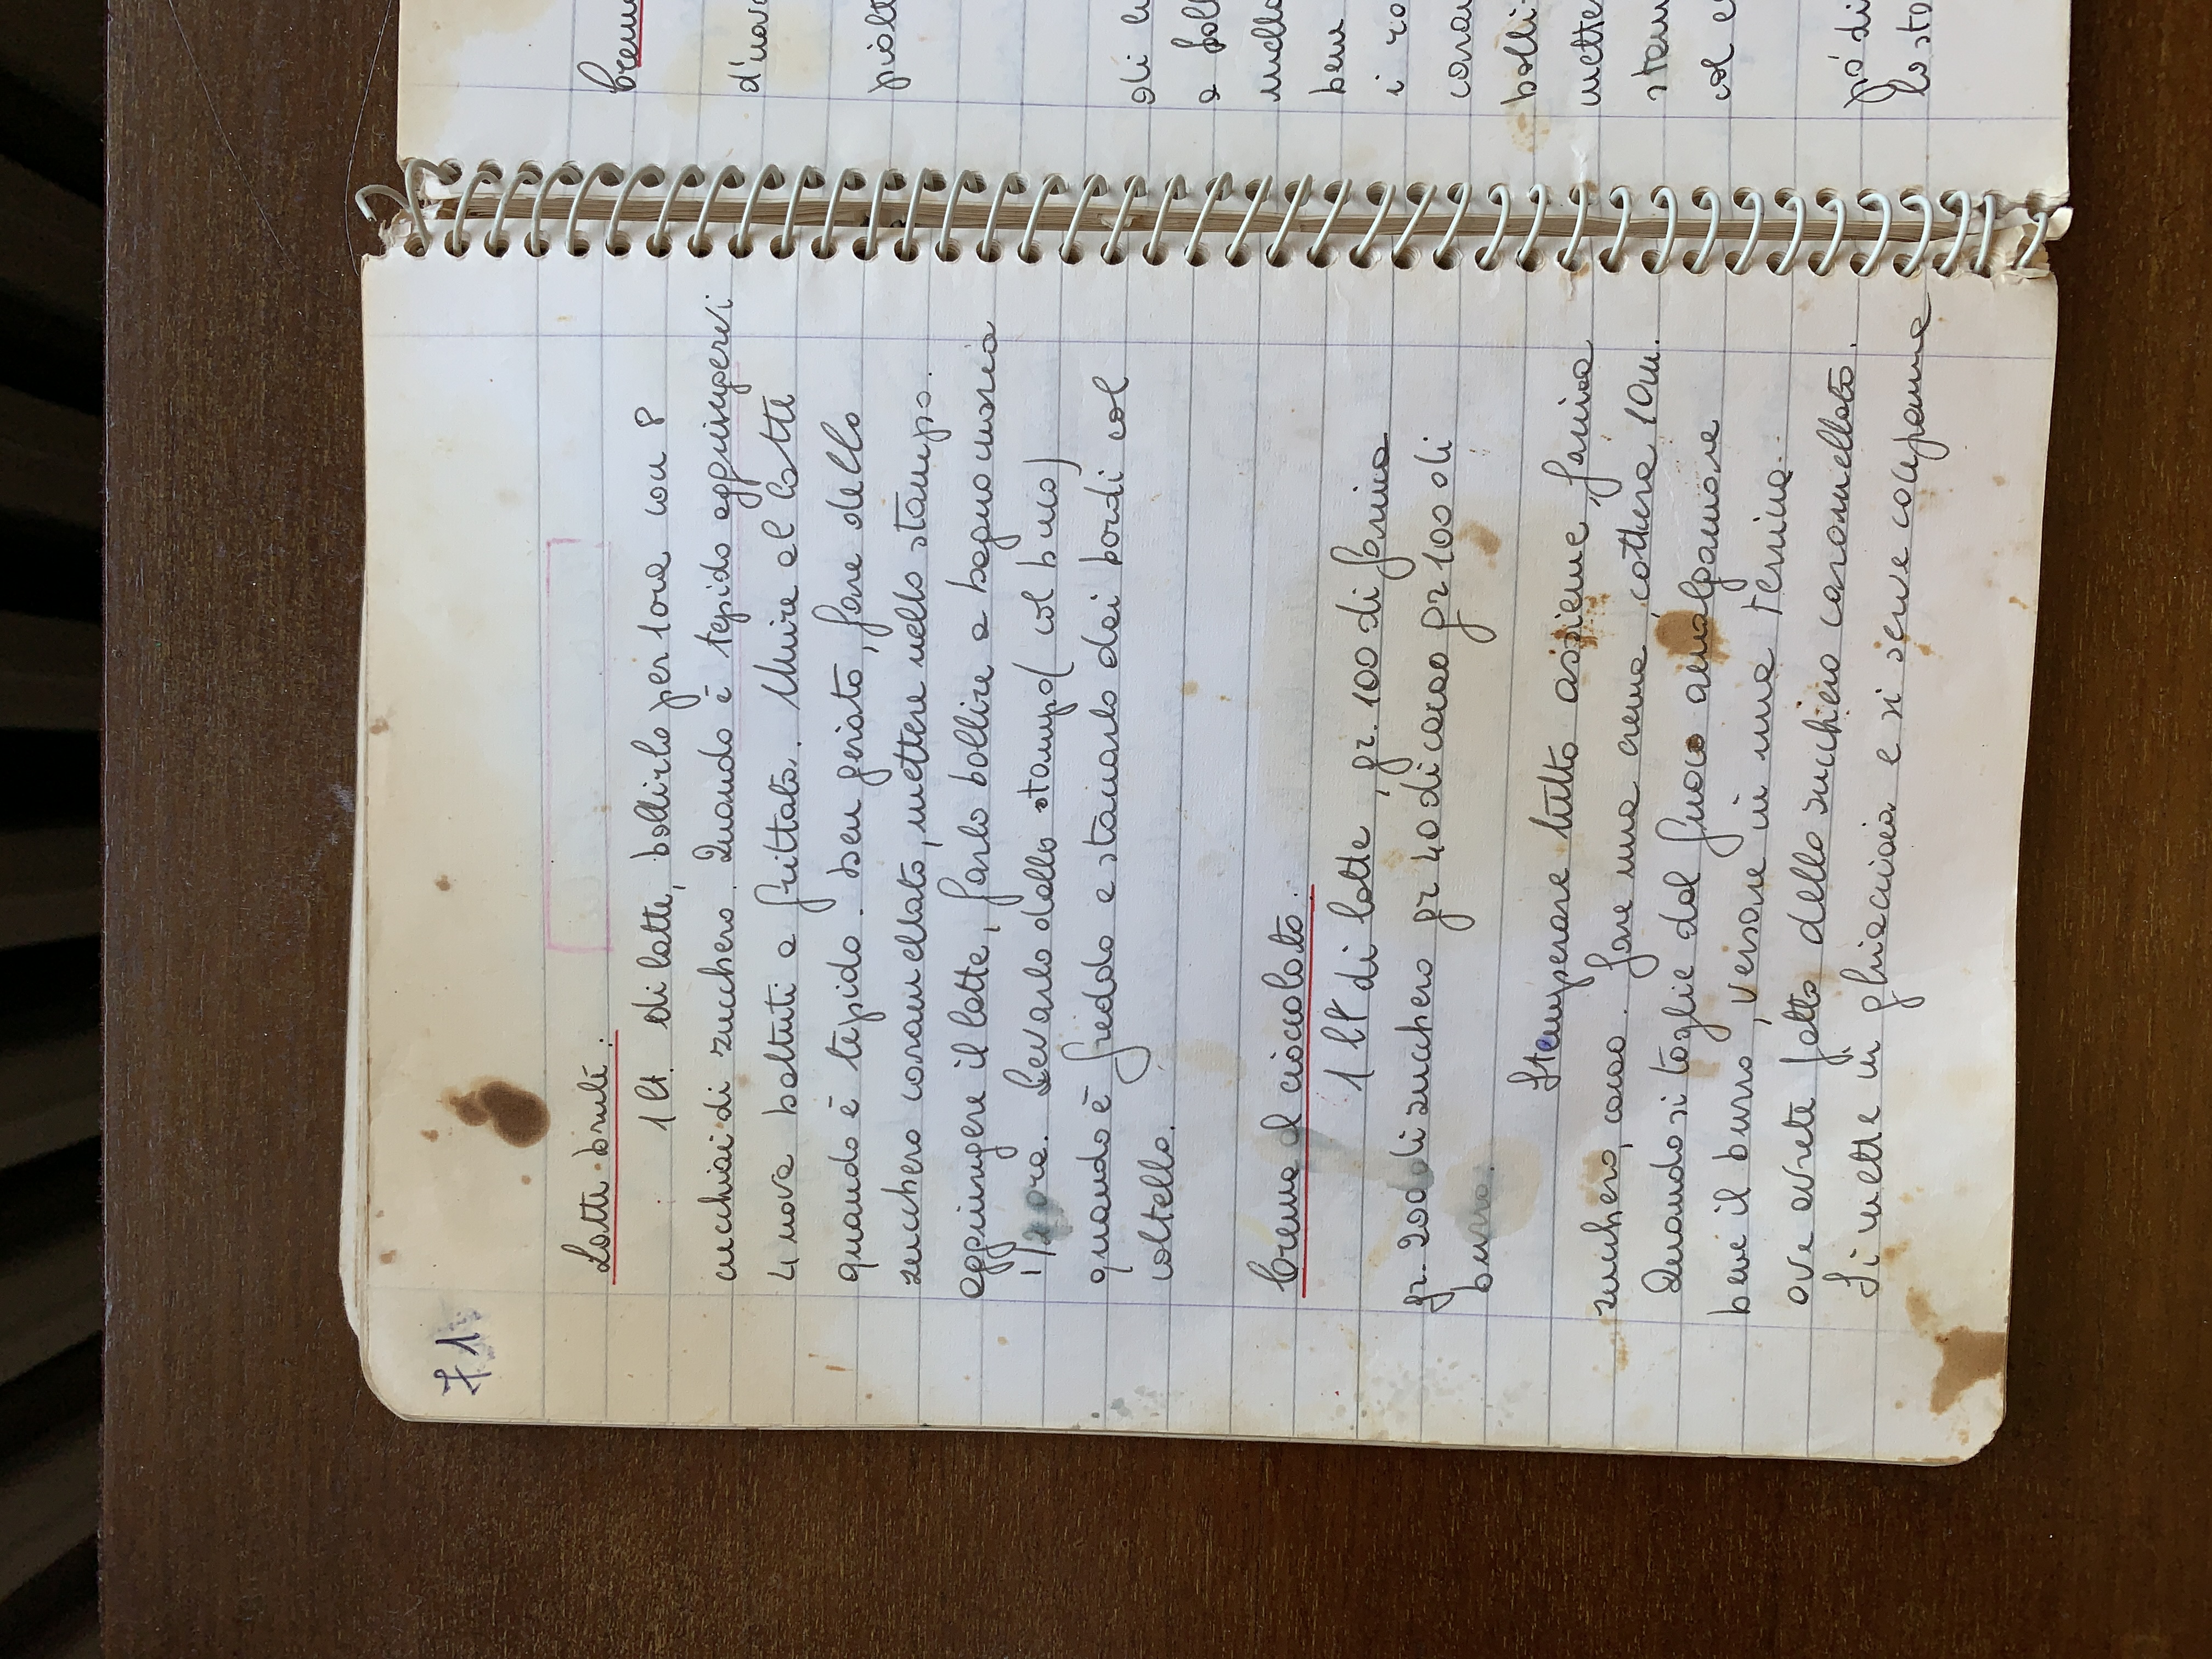 71
Latte brulè:
1 lt. di latte, bollirlo per 1 ora con 8
cucchiai di zucchero. Quando è tepido aggiungervi
4 uova battuti a frittata. Unire al latte
quando è tepido. ben girato, fare dello
zucchero caramellato, mettere nello stampo.
aggiungere il latte, farlo bollire a bagno maria
1/2 ora. Levarlo dallo stampo (col buco)
quando è freddo e staccarlo dai bordi col
coltello.
Crema al cioccolato:
1 lt di latte, gr. 100 di farina
gr. 200 di zucchero gr 40 di cacao gr 100 di
burro.
Stemperare tutto assieme, farina
zucchero, cacao. fare una crema, cottura 10 m.
Quando si toglie dal fuoco amalgamare
bene il burro, versare in una terrina
ove avrete fatto dello zucchero caramellato.
Si mette in ghiacciaia e si serve con panna
d'uova
di
a
bene
i
bolli-
col
pò di
lo